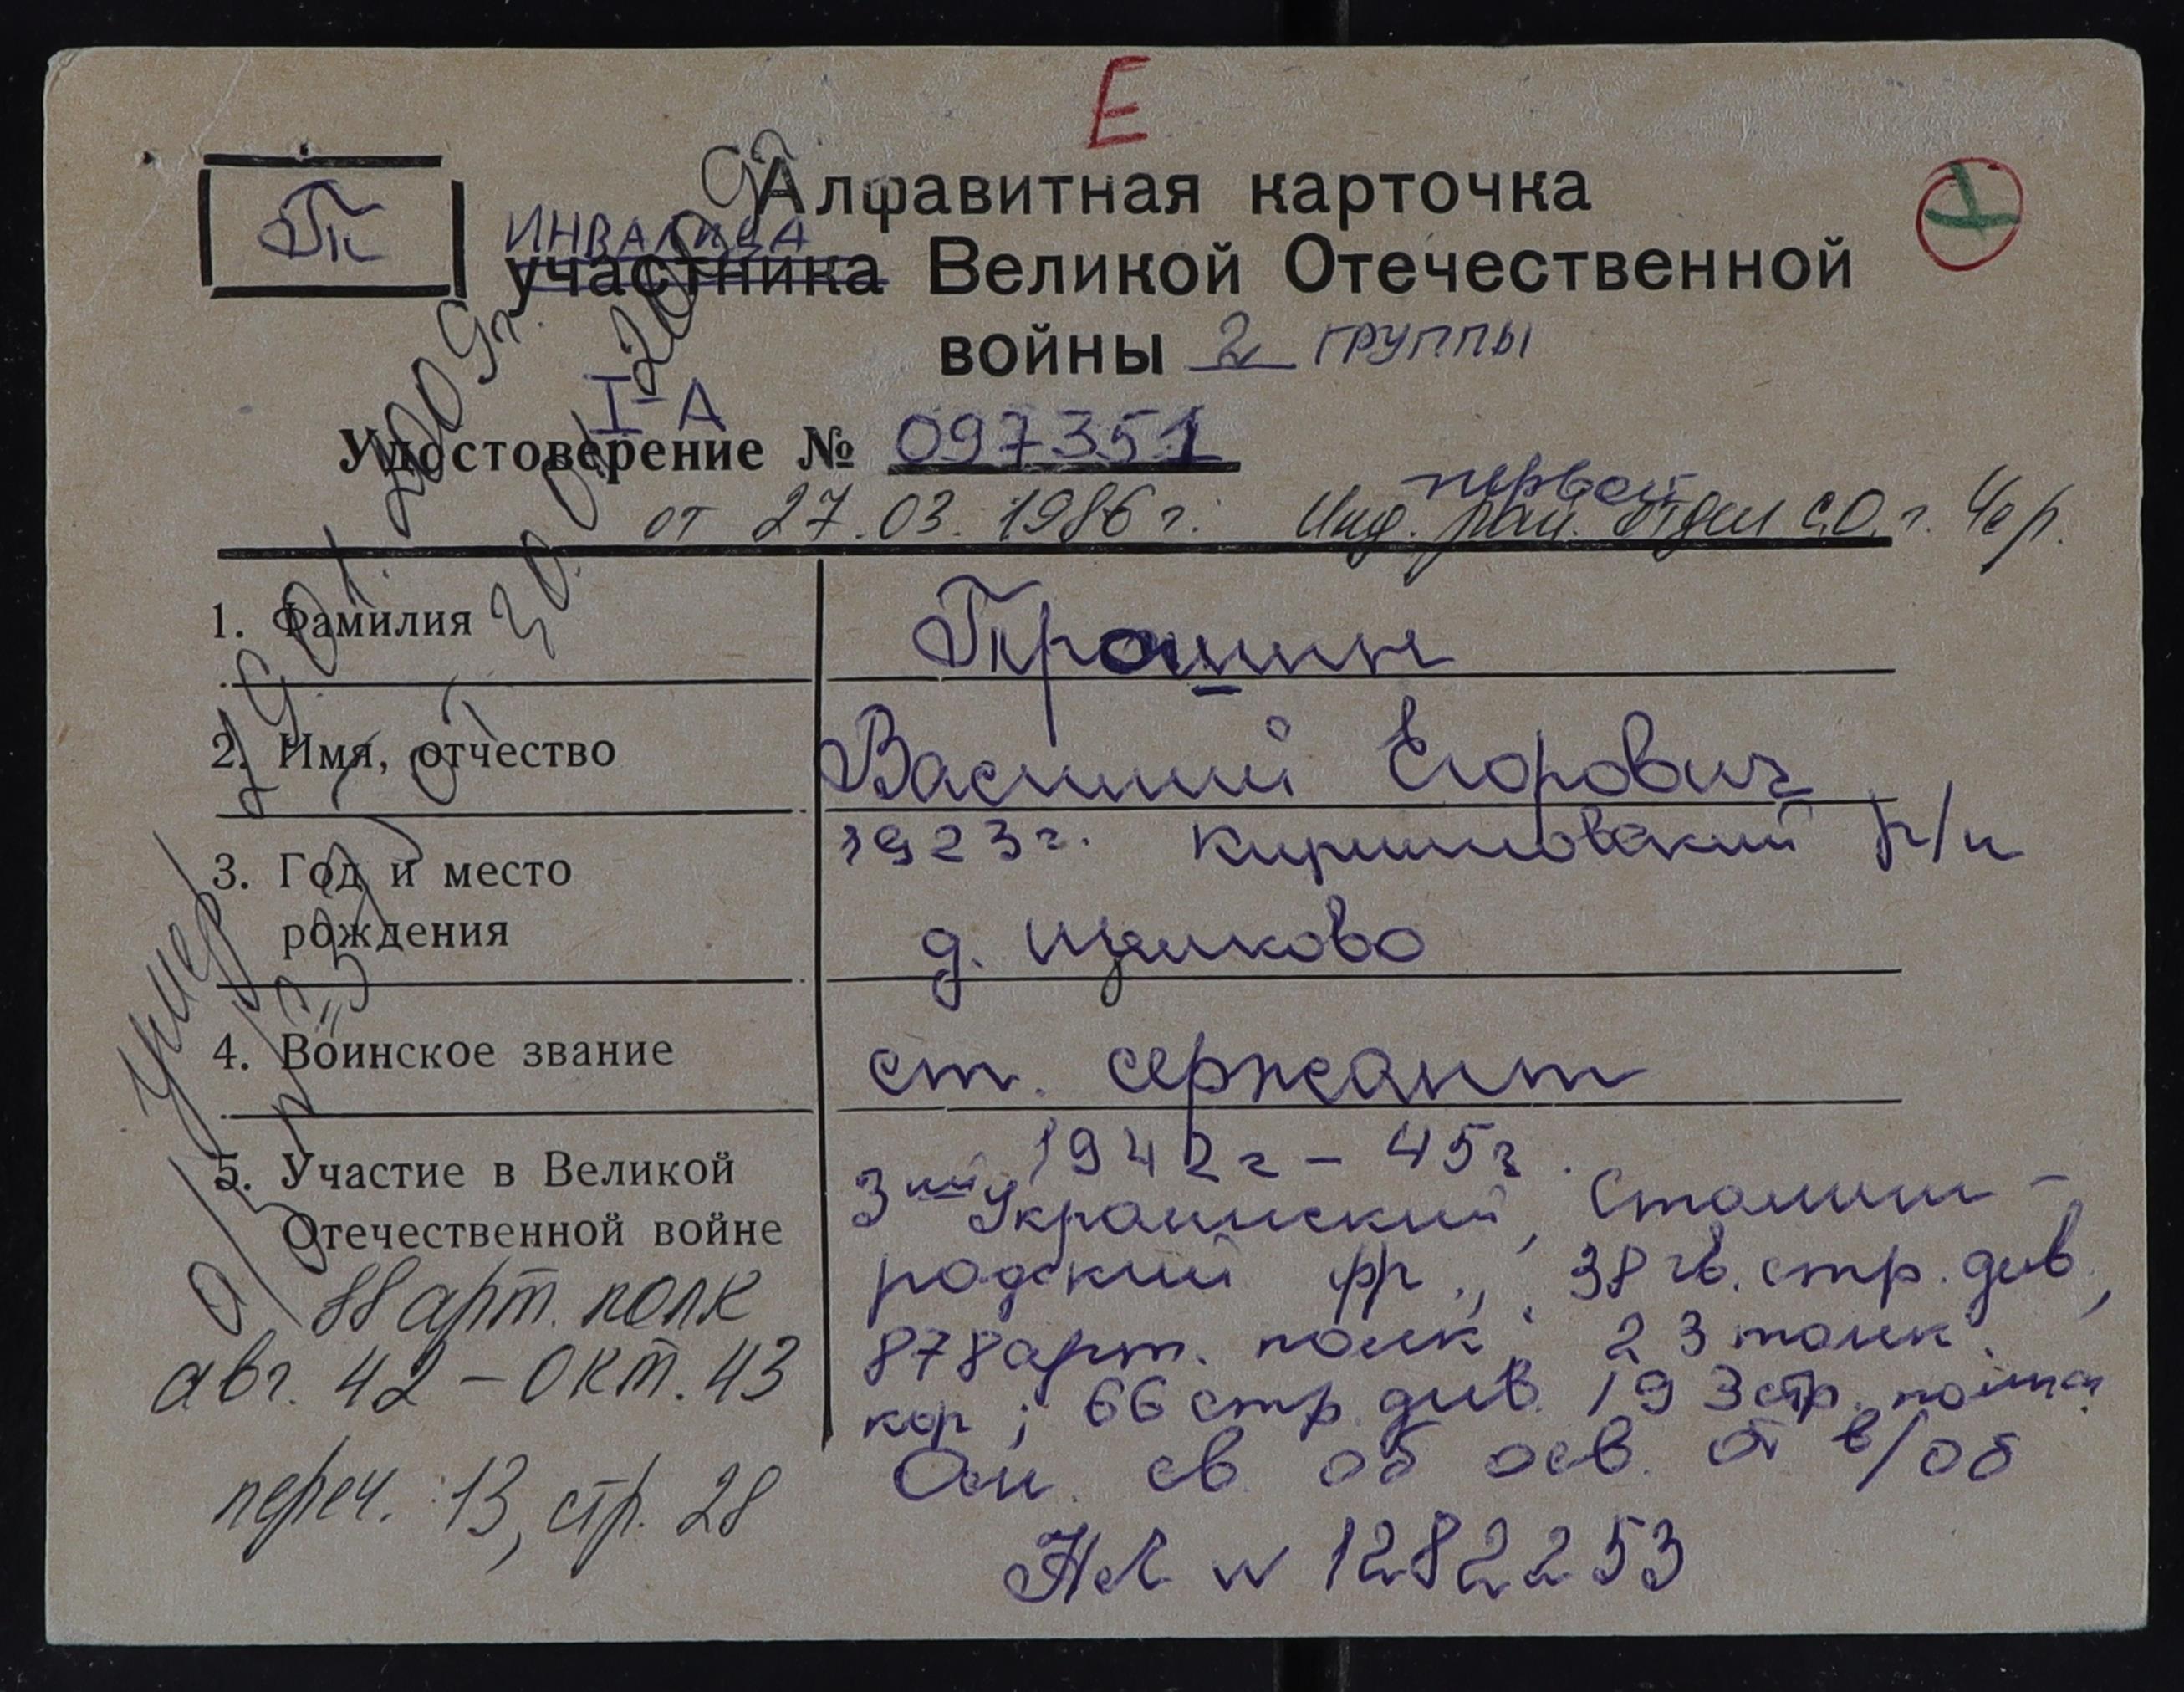 Е
Тк
Алфавитная карточка
ИНВАЛИДА
участника Великой Отечественной
войны 2 группы
I-А
Удостоверение № 097351
первой
от 27.03.1986 г. Инд. рай. отдел С.О. г. Чер.
1. Фамилия Трошин
2. Имя, отчество Василий Егорович
3. Год и место рождения 1923г. Кирилловский р/н
д. Щелково
4. Воинское звание ст. сержант
5. Участие в Великой Отечественной войне
1942г – 45г.
3ий Украинский, Сталин-
градский фр., 38 гв. стр. див.,
878 арт. полк, 23 танк.
кор; 66 стр. див. 193 стр. полка
Осн. св. об осв. от в/об
НЛ № 1282253
88 арт. полк
авг. 42 – окт. 43
переч. 13, стр. 28
Умер 29.01.2009г.